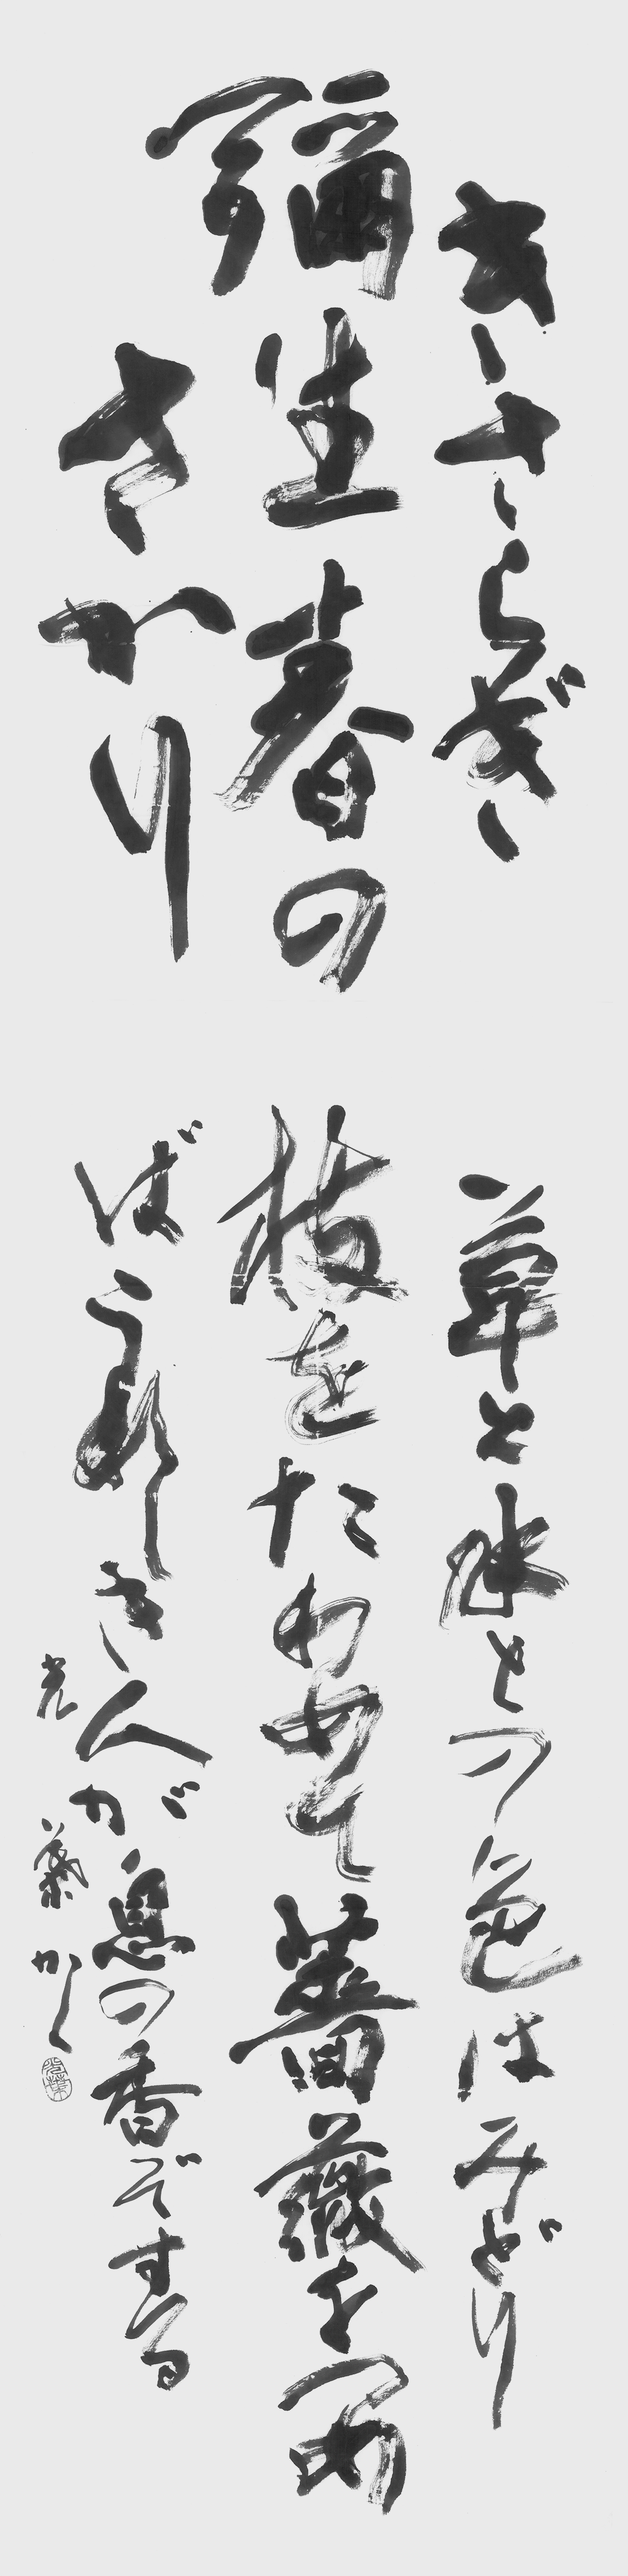 きさらぎ
彌生春の
さかり
草と水との色はみどり
枝をたわめて薔薇をつめ
ばうれしき人が息の香ぞする
光葉かく
光葉